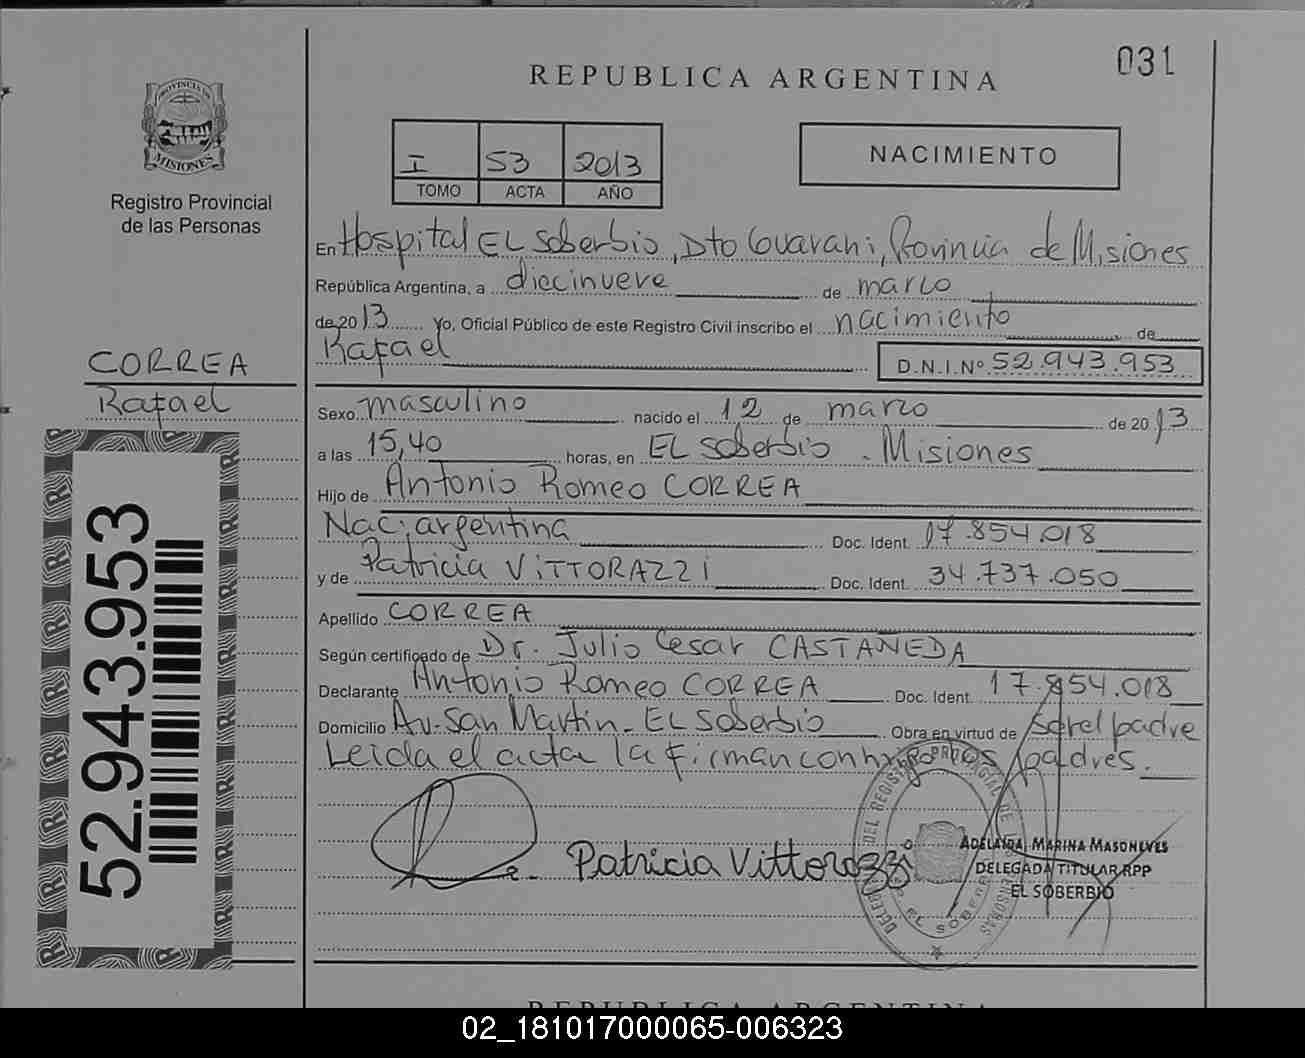 031
REPUBLICA ARGENTINA
PROVINCIA DE
MISIONES
Registro Provincial
de las Personas
I 53 2013
TOMO ACTA AÑO
NACIMIENTO
En Hospital EL Soberbio, Dto Guarani, Provincia de Misiones
República Argentina, a diecinueve de marzo
de 2013 Yo, Oficial Público de este Registro Civil inscribo el nacimiento de
Rafael D.N.I.Nº 52.943.953
CORREA
Rafael
Sexo masculino nacido el 12 de marzo de 2013
a las 15,40 horas, en EL Soberbio - Misiones
Hijo de Antonio Romeo CORREA
Nac: argentina Doc. Ident. 17.854.018
y de Patricia ViTTORAZZi Doc. Ident. 34.737.050
Apellido CORREA
Según certificado de Dr. Julio Cesar CASTAÑEDA
Declarante Antonio Romeo CORREA Doc. Ident. 17.854.018
Domicilio Av. San Martin - EL Soberbio Obra en virtud de ser el padre
Leida el acta la firman conmigo los padres.
52.943.953
Patricia Vittorazzi
ADELAIDA MARINA MASONEVES
DELEGADA TITULAR RPP
EL SOBERBIO
DEL REGISTRO PROVINCIAL DE
EL SOBERBIO
REPUBLICA ARGENTINA
02_181017000065-006323